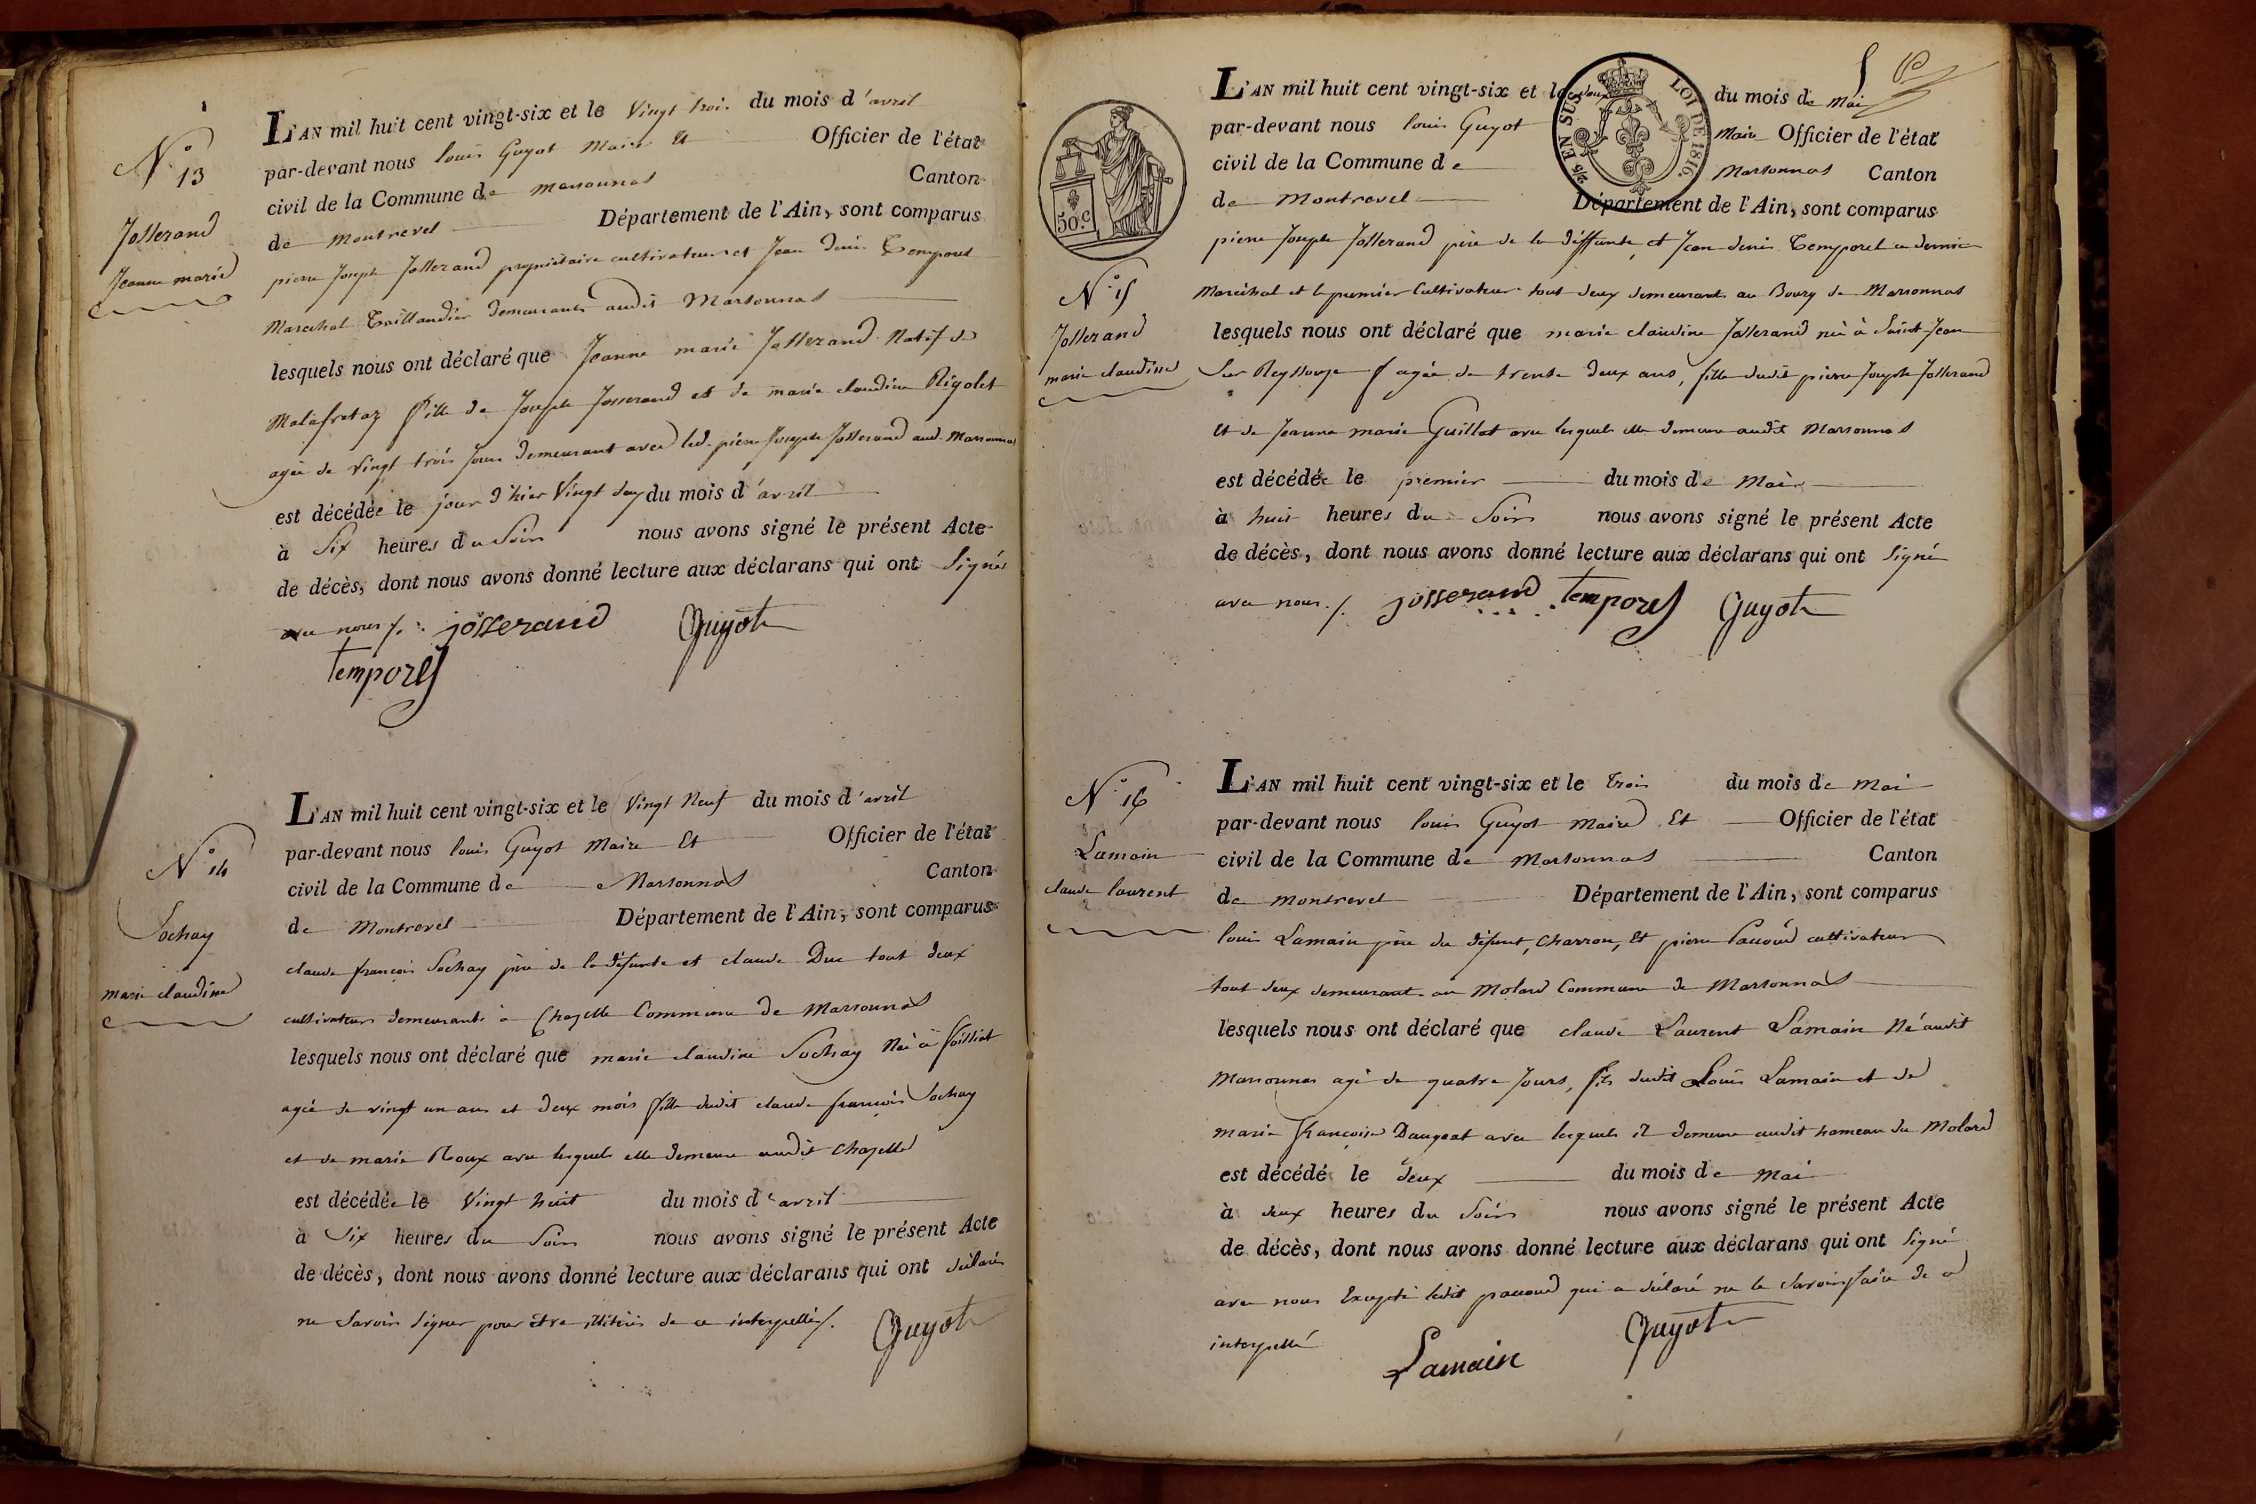 N.° 13
Josserand
Jeanne marie
L'AN mil huit cent vingt-six et le Vingt trois du mois d'avril
par-devant nous louis Guyot Maire Et Officier de l'état
civil de la Commune de Marsonnas Canton
de Montrevel Département de l'Ain, sont comparus
pierre Joseph Josserand propriétaire cultivateur et Jean Denis Temporel
Marechal Taillandier demeurants audit Marsonnas
lesquels nous ont déclaré que Jeanne marie Josserand Natif de
Malafretaz fille de Joseph Josserand et de marie claudine Rigolet
agée de vingt trois Jours demeurant avec led. pierre Joseph Josserand aud. Marsonnas
est décédée le jour d'hier Vingt deux du mois d'avril
à Six heures du Soir nous avons signé le présent Acte
de décès, dont nous avons donné lecture aux déclarans qui ont Signés
avec nous /. josserand Guyot
temporel
N.° 14
Sochay
marie claudine
L'AN mil huit cent vingt-six et le Vingt Neuf du mois d'avril
par-devant nous louis Guyot Maire Et Officier de l'état
civil de la Commune de Marsonnas Canton
de Montrevel Département de l'Ain, sont comparus
claude françois Sochay père de la défunte et claude Duc tout deux
cultivateurs demeurants à Chapelle Commune de Marsonnas
lesquels nous ont déclaré que marie claudine Sochay Née à foissiat
agée de vingt un ans et deux mois fille dudit claude françois Sochay
et de marie Roux avec lesquels elle demeure audit Chapelle
est décédée le Vingt huit du mois d'avril
à Six heures du Soir nous avons signé le présent Acte
de décès, dont nous avons donné lecture aux déclarans qui ont déclarés
ne Savoir Signer pour être illitérés de ce interpellés /. Guyot
L'AN mil huit cent vingt-six et le deux du mois de Mai
par-devant nous louis Guyot Maire Officier de l'état
civil de la Commune de Marsonnas Canton
de Montrevel Département de l'Ain, sont comparus
2/5 EN SUS LOI DE 1816.
50.c
N.° 15
Josserand
marie claudine
pierre Joseph Josserand père de la déffunte, et Jean denis Temporel ce dernier
Maréchal et le premier Cultivateur tout deux demeurants au Bourg de Marsonnas
lesquels nous ont déclaré que marie claudine Josserand née à Saint-Jean
Sur Reyssouze agée de trente deux ans, fille dudit pierre Joseph Josserand
et de Jeanne marie Guillot avec lesquels elle demeure audit Marsonnas
est décédée le premier du mois de Mai
à huit heures du Soir nous avons signé le présent Acte
de décès, dont nous avons donné lecture aux déclarans qui ont Signé
avec nous /. josserand temporel Guyot
N.° 16
Lamain
claude laurent
L'AN mil huit cent vingt-six et le trois du mois de Mai
par-devant nous louis Guyot Maire Et Officier de l'état
civil de la Commune de Marsonnas Canton
de Montrevel Département de l'Ain, sont comparus
louis Lamain père du défunt, Charron, Et pierre cultivateur
tout deux demeurant au Molard Commune de Marsonnas
lesquels nous ont déclaré que claude Laurent Lamain Né audit
Marsonnas agé de quatre Jours, fils dudit Louis Lamain et de
marie françoise Daugeat avec lesquels il demeure audit hameau du Molard
est décédé le deux du mois de Mai
à deux heures du Soir nous avons signé le présent Acte
de décès, dont nous avons donné lecture aux déclarans qui ont Signé
avec nous Excepté ledit qui a déclaré ne le Savoir faire de ce
interpellé Lamain Guyot